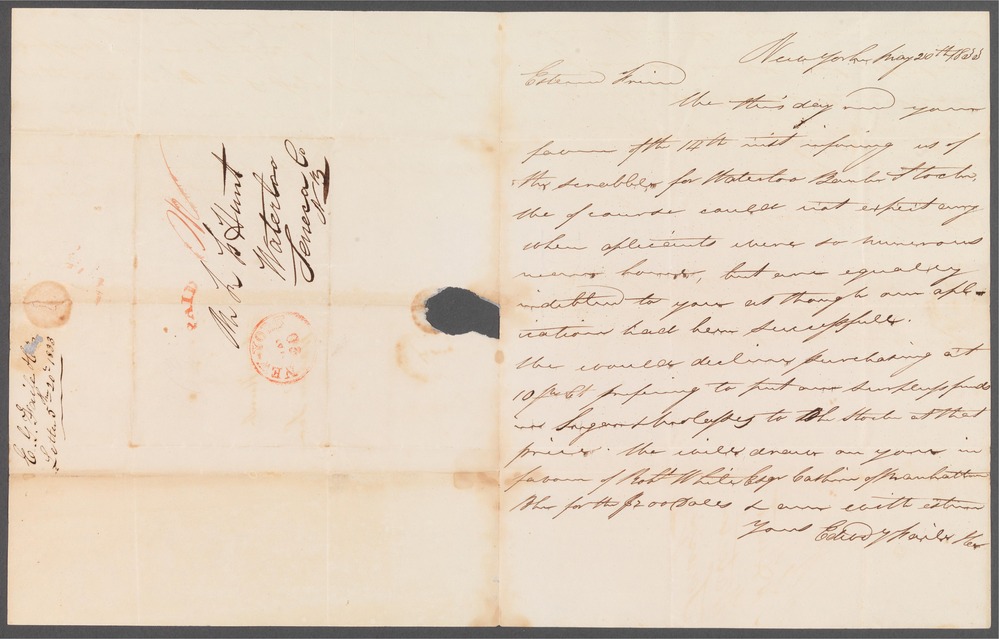 New York May 20th 1833
Esteemd Friend
We this day recd your
favour of the 14th inst infoming us of
the scrabble for Waterloo Bank Stock.
We of course could not expect any
when aplicents were so numerous
nearer home, but are equally
indebted to you as though our apli-
cation had been successfull.
We would decline purchasing at
10 pr Ct prefering to put our surplus funds
in Sugar & Molasses to Bk Stock at that
price. We will draw on you in
favour of Robt White Esqr Cashier of Manhattan
Bk for the $200 Dolls & are with esteem
Yours
PAID
R P Hunt
Waterloo
Seneca Co
NY
NE YOR
MAY
20
Letter 5 mo 20th 1833